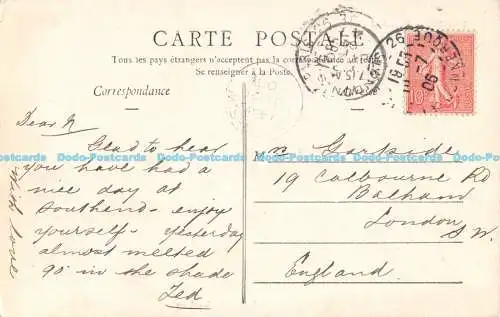 CARTE POSTALE
Tous les pays étrangers n'acceptent pas la correspondance au recto
Se renseigner à la Poste.
Correspondance
Dear N
Glad to hear
you have had a
nice day at
Southend - enjoy
yourself - yesterday
almost melted
90° in the shade
Ted
with love
M Garside
19 Calbourne Rd
Balham
London
S.W.
England
Dodo-Postcards Dodo-Postcards Dodo-Postcards Dodo-Postcards Dodo-Postcards